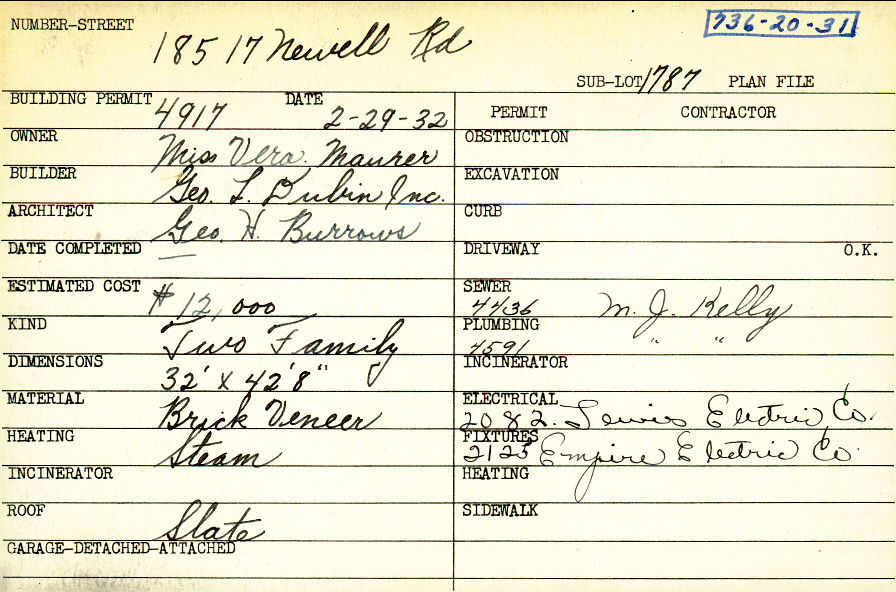 NUMBER-STREET 18517 Newell Rd 736-20-31
SUB-LOT 1787 PLAN FILE
BUILDING PERMIT 4917 DATE 2-29-32
OWNER Miss Vera Maurer
BUILDER Geo. L. Dubin Inc.
ARCHITECT Geo. H. Burrows
DATE COMPLETED —
ESTIMATED COST $12,000
KIND Two Family
DIMENSIONS 32' X 42'8"
MATERIAL Brick Veneer
HEATING Steam
INCINERATOR
ROOF Slate
GARAGE-DETACHED-ATTACHED
PERMIT CONTRACTOR
OBSTRUCTION
EXCAVATION
CURB
DRIVEWAY O.K.
SEWER 4436 M. J. Kelly
PLUMBING 4591 " "
INCINERATOR
ELECTRICAL 2082 Lewis Electric Co.
FIXTURES 2125 Empire Electric Co.
HEATING
SIDEWALK